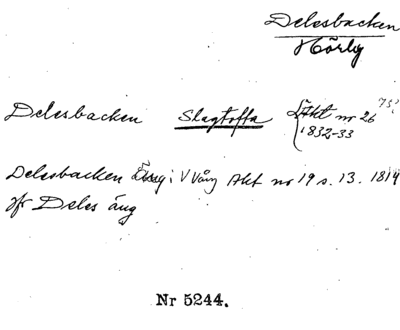 Delesbacken
Hörby
Delesbacken Slagtoffa Akt nr 26 73?
1832-33
Delesbacken Äng i V Vång Akt no 19 s. 13. 1814
Jfr Deles äng
Nr 5244.